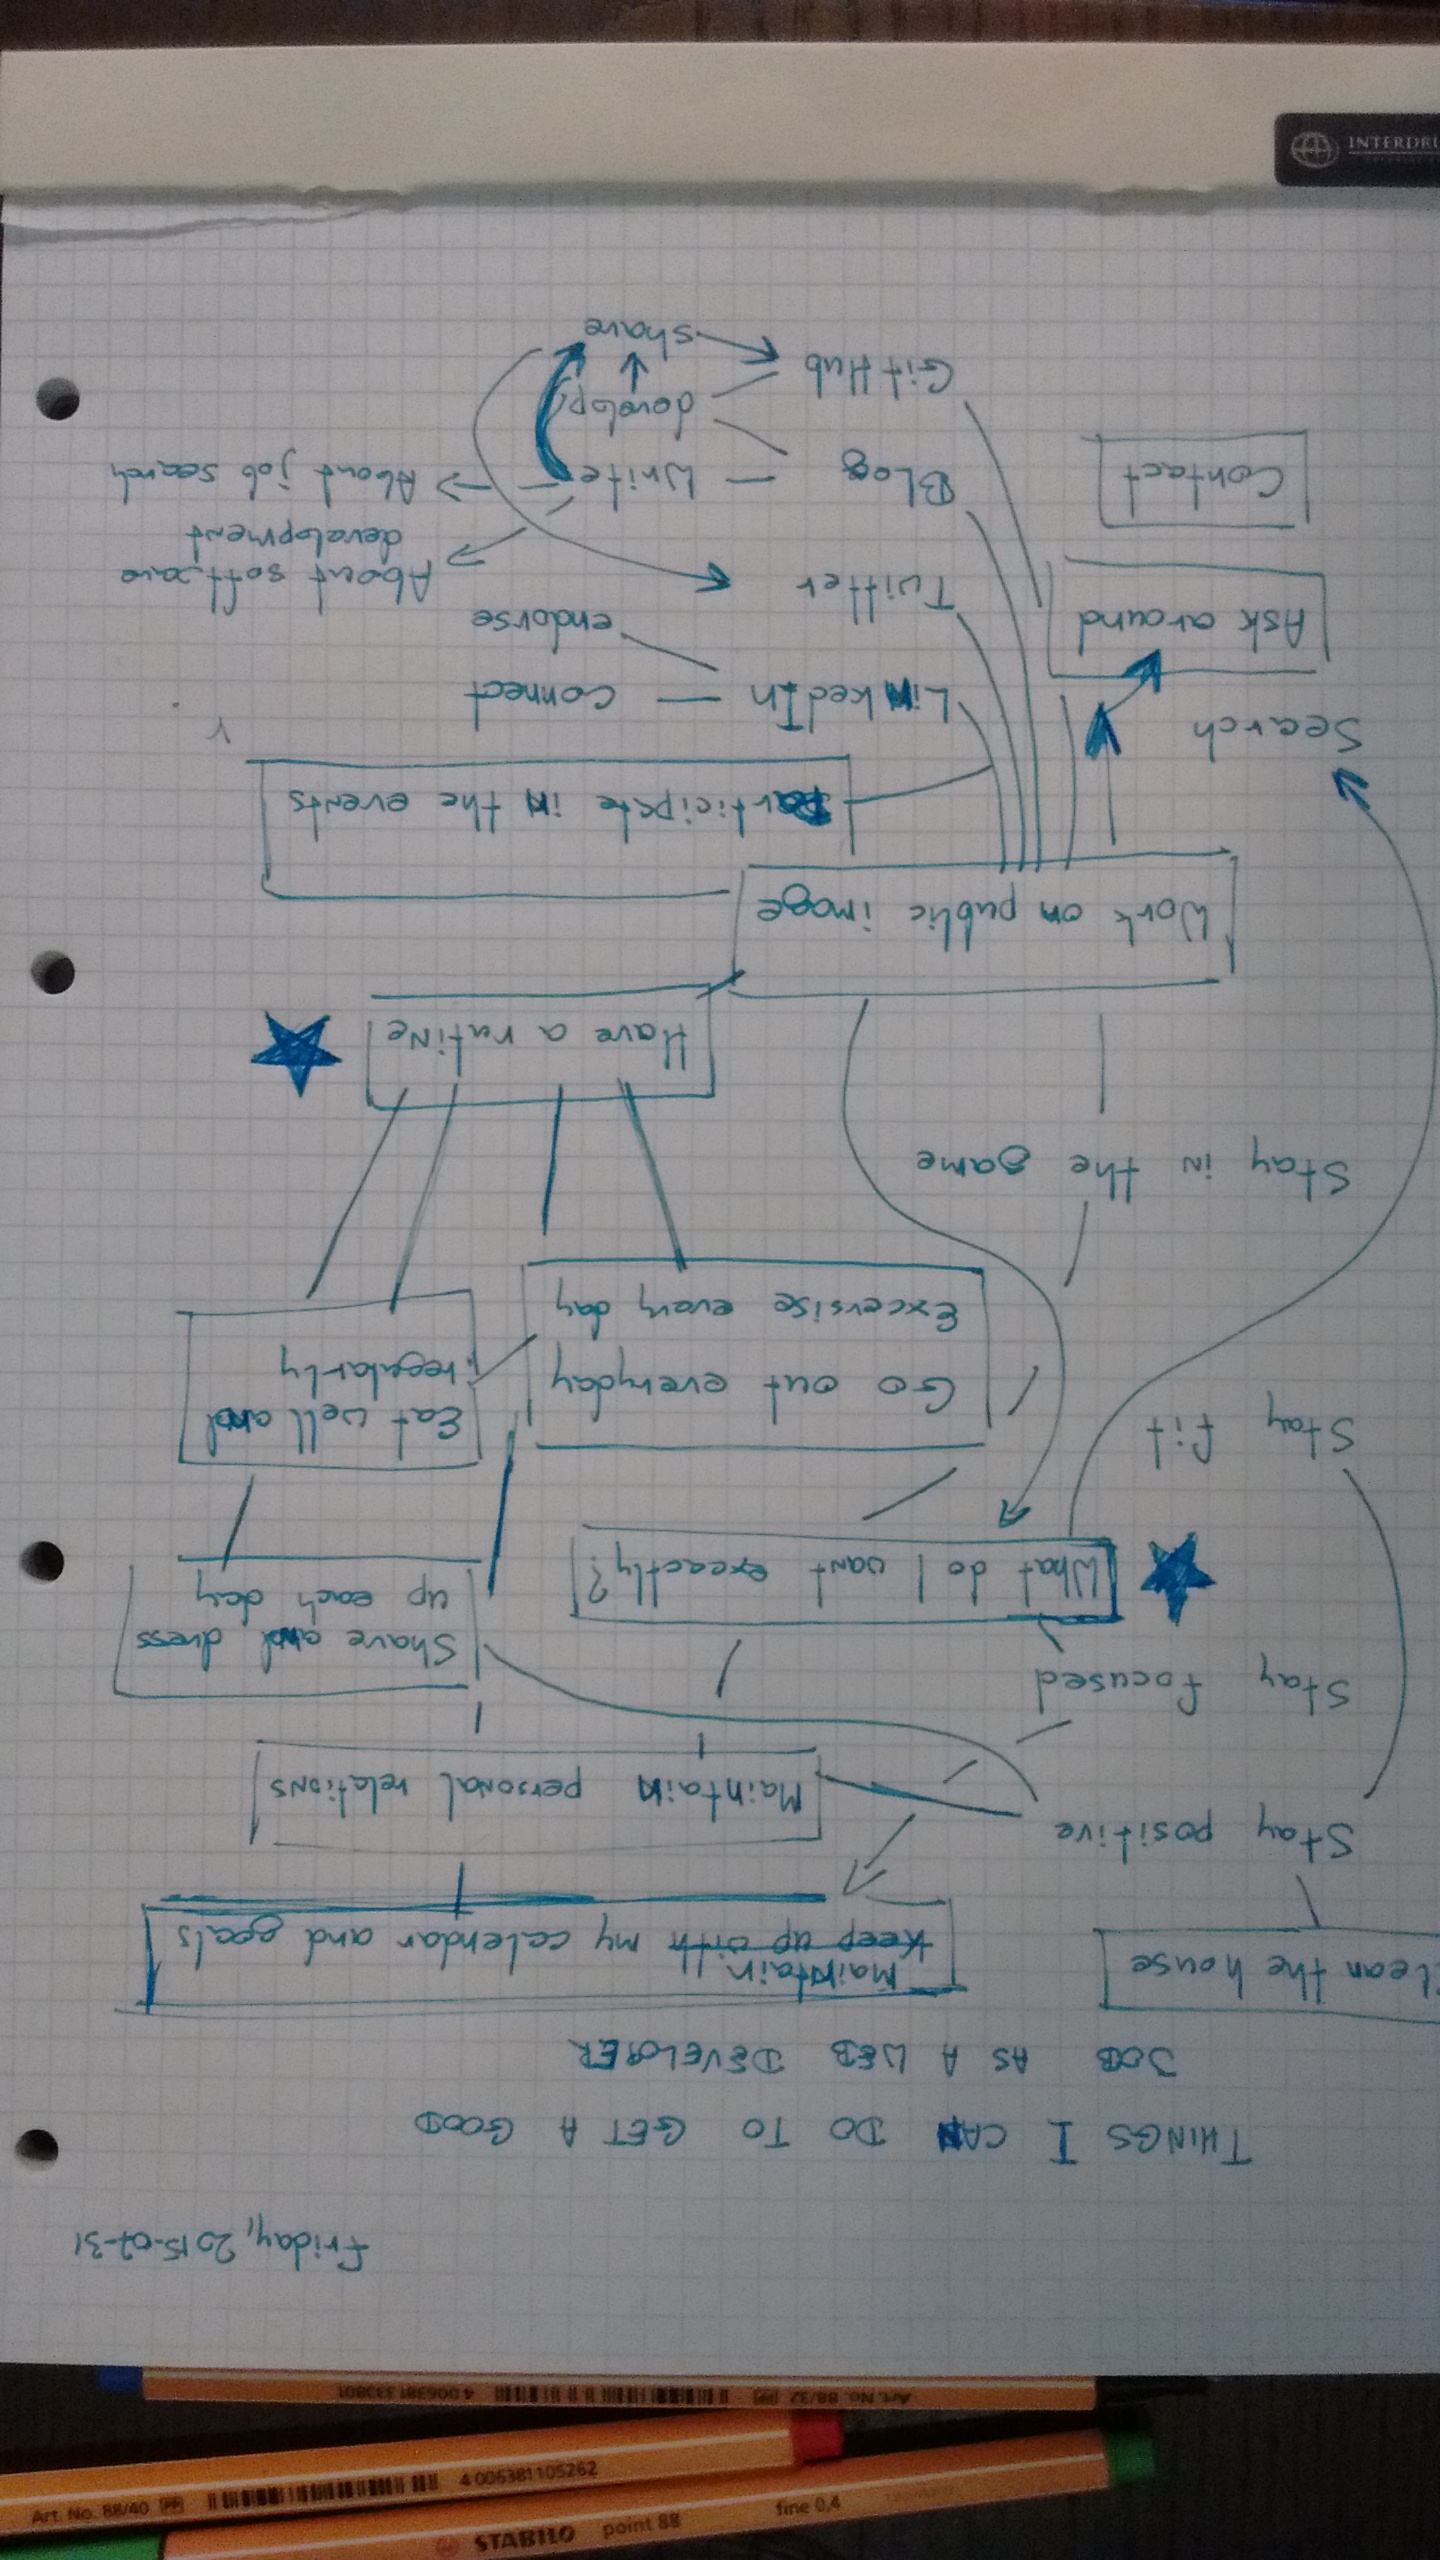 STABILO point 88 fine 0,4
Art. No. 88/40 4 006381 105262
Art. No. 88/32 4 006381 333801
Friday, 2015-07-31
THINGS I CAN DO TO GET A GOOD
JOB AS A WEB DEVELOPER
Clean the house
Maintain
Keep up with my calendar and goals
Stay positive
Maintain personal relations
Stay focused
Shave and dress
up each day
What do I want excactly?
Stay fit
Eat well and
regularly
Go out everyday
Excersise every day
Stay in the game
Have a rutine
Work on public image
Participate in the events
Search
LinkedIn — connect
endorse
Ask around
Twitter
About software
development
Contact
Blog — Write
About job search
develop
GitHub
share